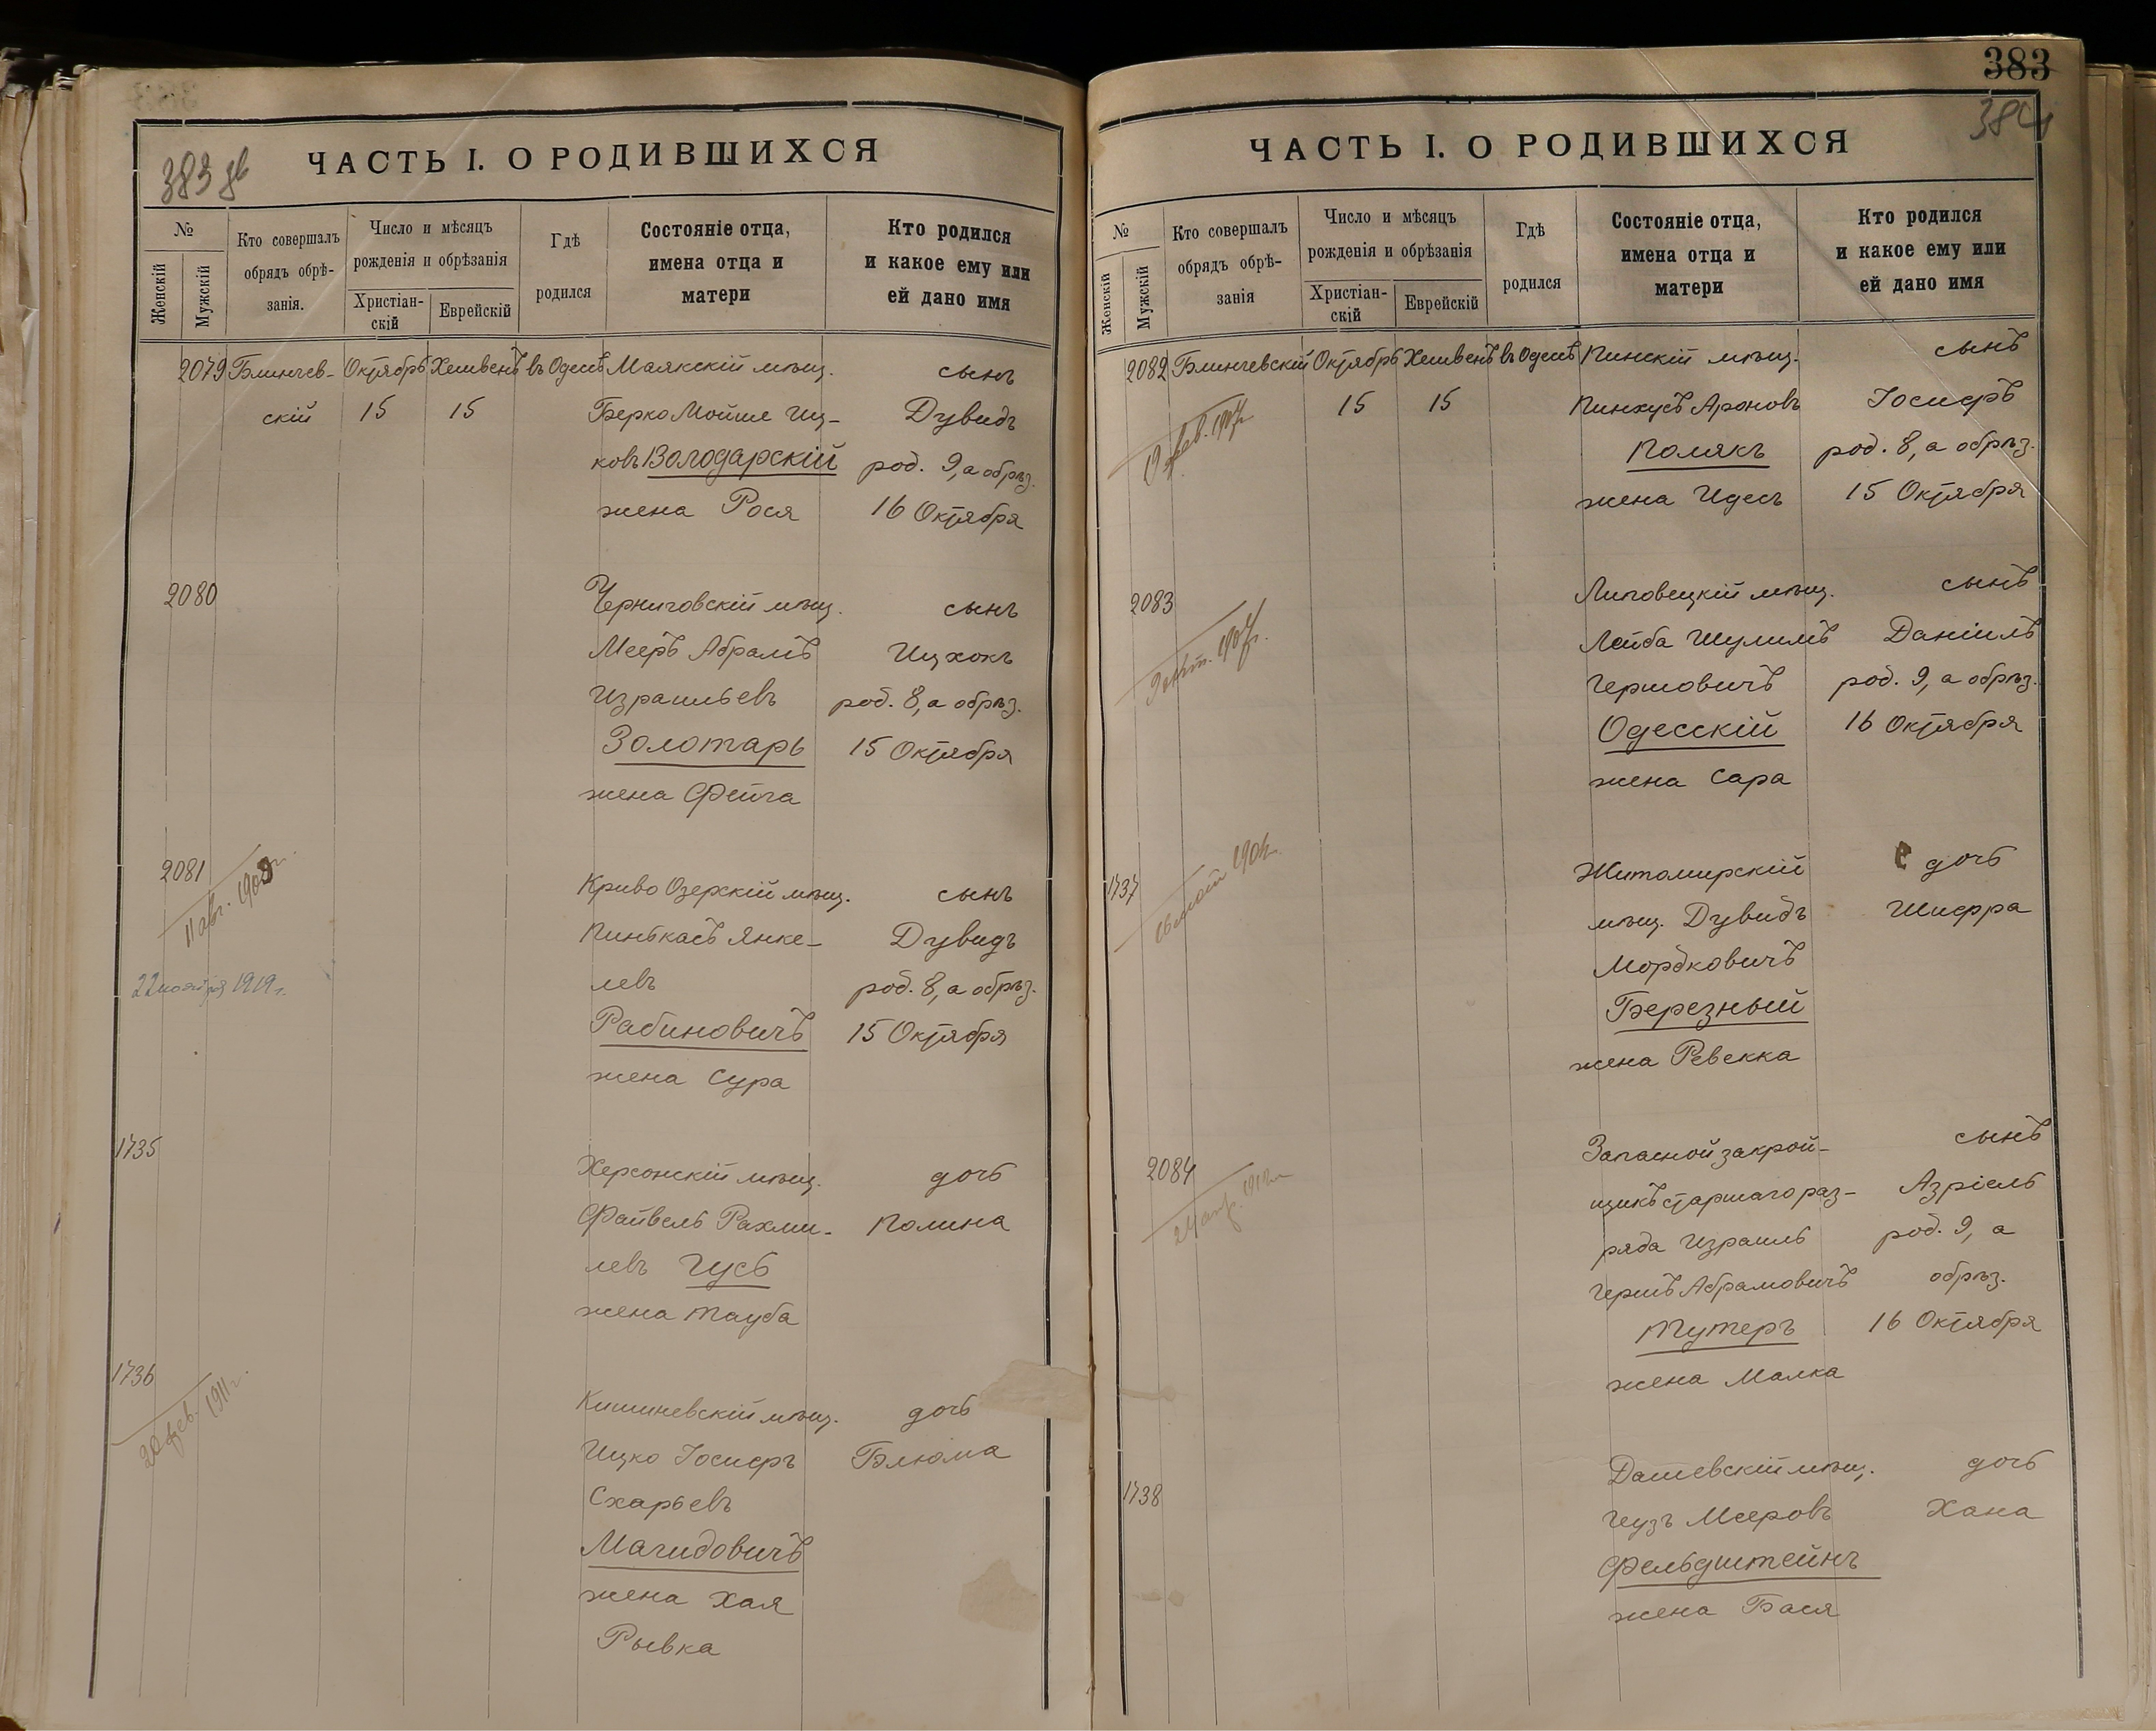 383 об
ЧАСТЬ I. О РОДИВШИХСЯ
№
Женскій
Мужскій
Кто совершалъ
обрядъ обрѣ-
занія.
Число и мѣсяцъ
рожденія и обрѣзанія
Христіан-
скій
Еврейскій
Гдѣ
родился
Состояніе отца,
имена отца и
матери
Кто родился
и какое ему или
ей дано имя
2079 Блинчев- Октябрь Хешвенъ въ Одессѣ Маякскій мѣщ. сынъ
скій 15 15 Берко Мойше Иц- Дувидъ
ковъ Володарскій род. 9, а обрѣз.
жена Рося 16 Октября
2080 Черниговскій мѣщ. сынъ
Мееръ Абрамъ Ицхокъ
Израильевъ род. 8, а обрѣз.
Золотарь 15 Октября
жена Фейга
2081
11 авг. 1908 г.
22 ноября 1919 г.
Криво Озерскій мѣщ. сынъ
Пинькасъ Янке- Дувидъ
левъ род. 8, а обрѣз.
Рабиновичъ 15 Октября
жена Сура
1735 Херсонскій мѣщ. дочь
Файвель Рахми- Полина
левъ Гусь
жена Тауба
1736
20 фев. 1911 г.
Кишиневскій мѣщ. дочь
Ицко Іосифъ Блюма
Схарьевъ
Магидовичъ
жена Хая
Рывка
383
384
ЧАСТЬ I. О РОДИВШИХСЯ
№
Женскій
Мужскій
Кто совершалъ
обрядъ обрѣ-
занія
Число и мѣсяцъ
рожденія и обрѣзанія
Христіан-
скій
Еврейскій
Гдѣ
родился
Состояніе отца,
имена отца и
матери
Кто родился
и какое ему или
ей дано имя
2082 Блинчевскій Октябрь Хешвенъ въ Одессѣ Пинскій мѣщ. сынъ
19 фев. 1907 г.
15 15 Пинхусъ Ароновъ Іосифъ
Полякъ род. 8, а обрѣз.
жена Идесъ 15 Октября
2083
9 окт. 1907 г.
Липовецкій мѣщ. сынъ
Лейба Шулимъ Даніилъ
Гершовичъ род. 9, а обрѣз.
Одесскій 16 Октября
жена Сара
1737
Житомирскій дочь
мѣщ. Дувидъ Шифра
Мордковичъ
Березный
жена Ревекка
2084
Запасной закрой- сынъ
щикъ старшаго раз- Азріель
ряда Израиль род. 9, а
Гершъ Абрамовичъ обрѣз.
Тутеръ 16 Октября
жена Малка
1738 Дашевскій мѣщ. дочь
Гузъ Мееровъ Хана
Фельдштейнъ
жена Бася